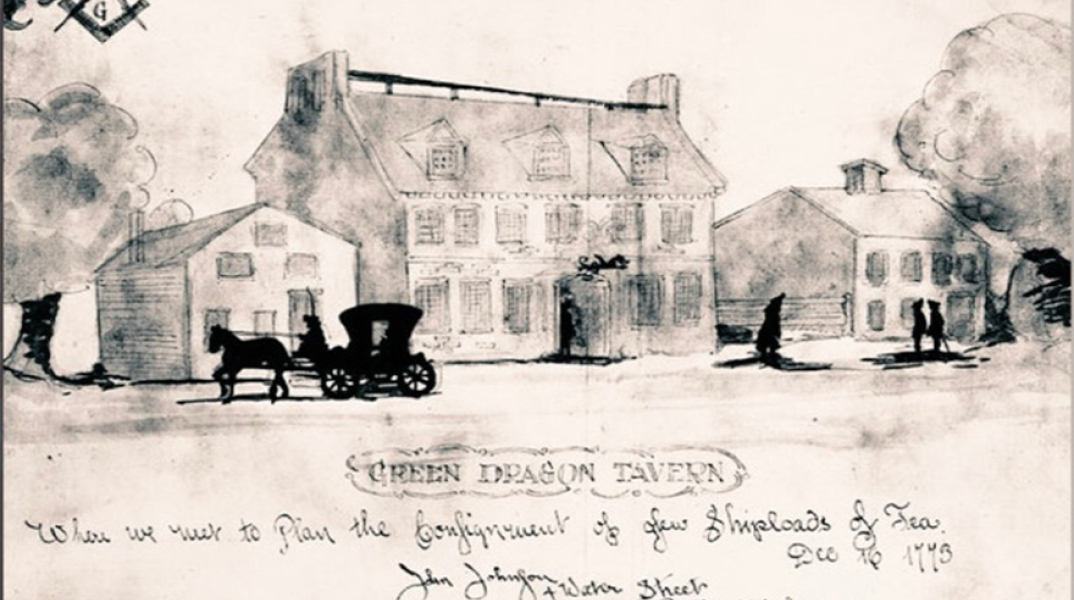 G
GREEN DRAGON TAVERN
Where we met to Plan the Consignment of a few Shiploads of Tea.
Dec 16 1773
John Johnson
Water Street